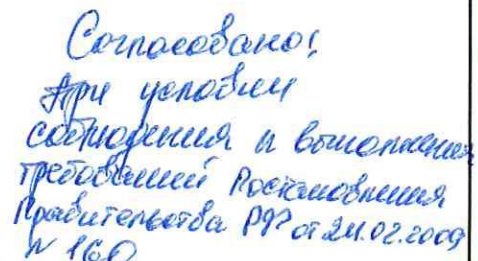 Согласовано!
При условии
соблюдения и выполнения
требований Постановления
Правительства РФ от 24.02.2009
N 160